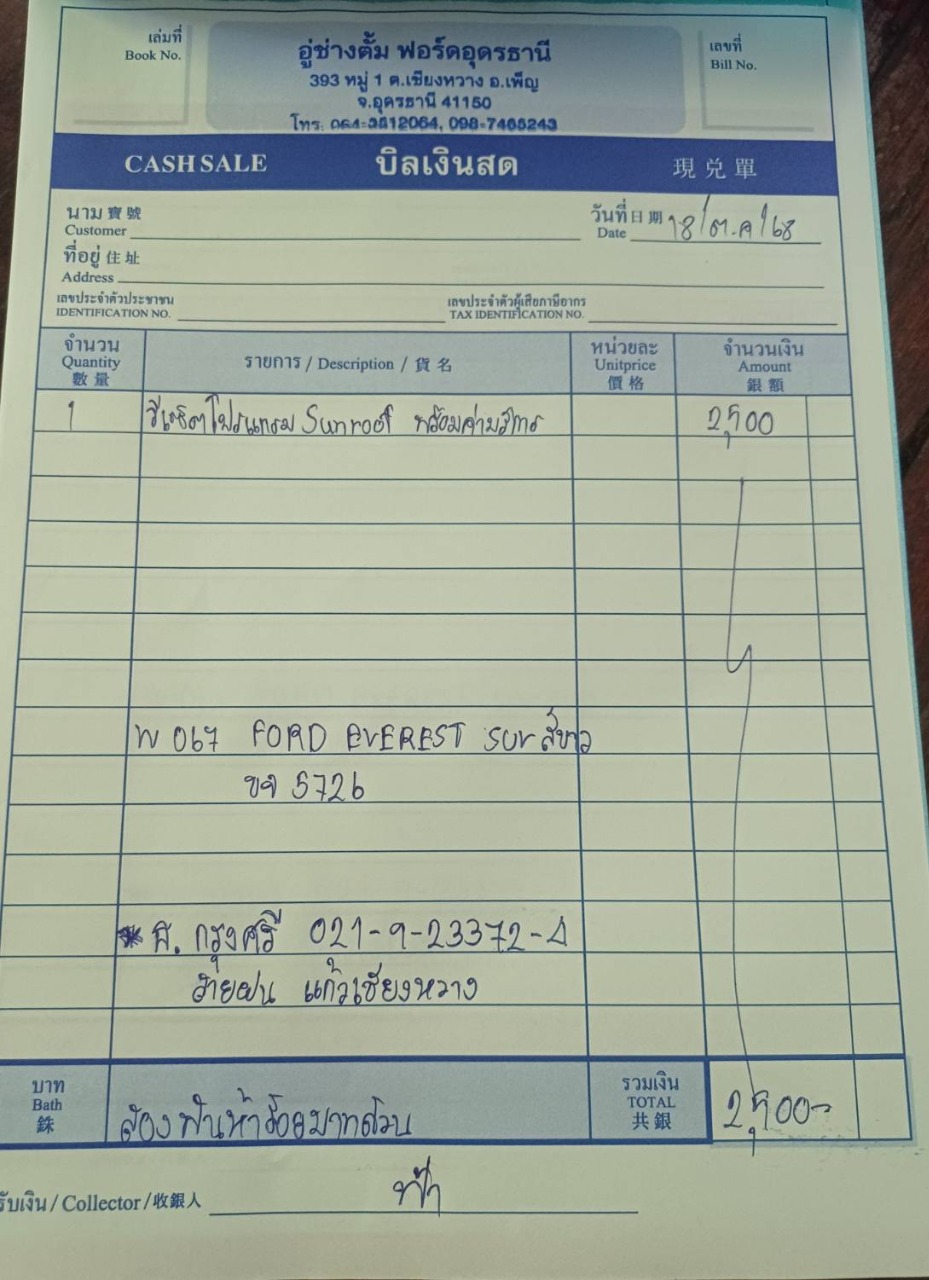 เล่มที่
Book No.
อู่ช่างตั้ม ฟอร์ดอุดรธานี
393 หมู่ 1 ต.เชียงหวาง อ.เพ็ญ
จ.อุดรธานี 41150
โทร. 064-3812064, 098-7465243
เลขที่
Bill No.
CASH SALE บิลเงินสด 現兌單
นาม 寶號
Customer
วันที่ 日期
Date 18/ต.ค/68
ที่อยู่ 住址
Address
เลขประจำตัวประชาชน
IDENTIFICATION NO.
เลขประจำตัวผู้เสียภาษีอากร
TAX IDENTIFICATION NO.
จำนวน
Quantity
數量
รายการ / Description / 貨名
หน่วยละ
Unitprice
價格
จำนวนเงิน
Amount
銀額
1 รีเซ็ตโปรแกรม Sunroof พร้อมค่าบริการ 2,500
W 067 FORD EVEREST SUV สีขาว
ขจ 5726
* ธ. กรุงศรี 021-9-23372-4
สายฝน แก้วเชียงหวาง
บาท
Bath
銖
สองพันห้าร้อยบาทถ้วน
รวมเงิน
TOTAL
共銀
2,500-
รับเงิน / Collector / 收銀人